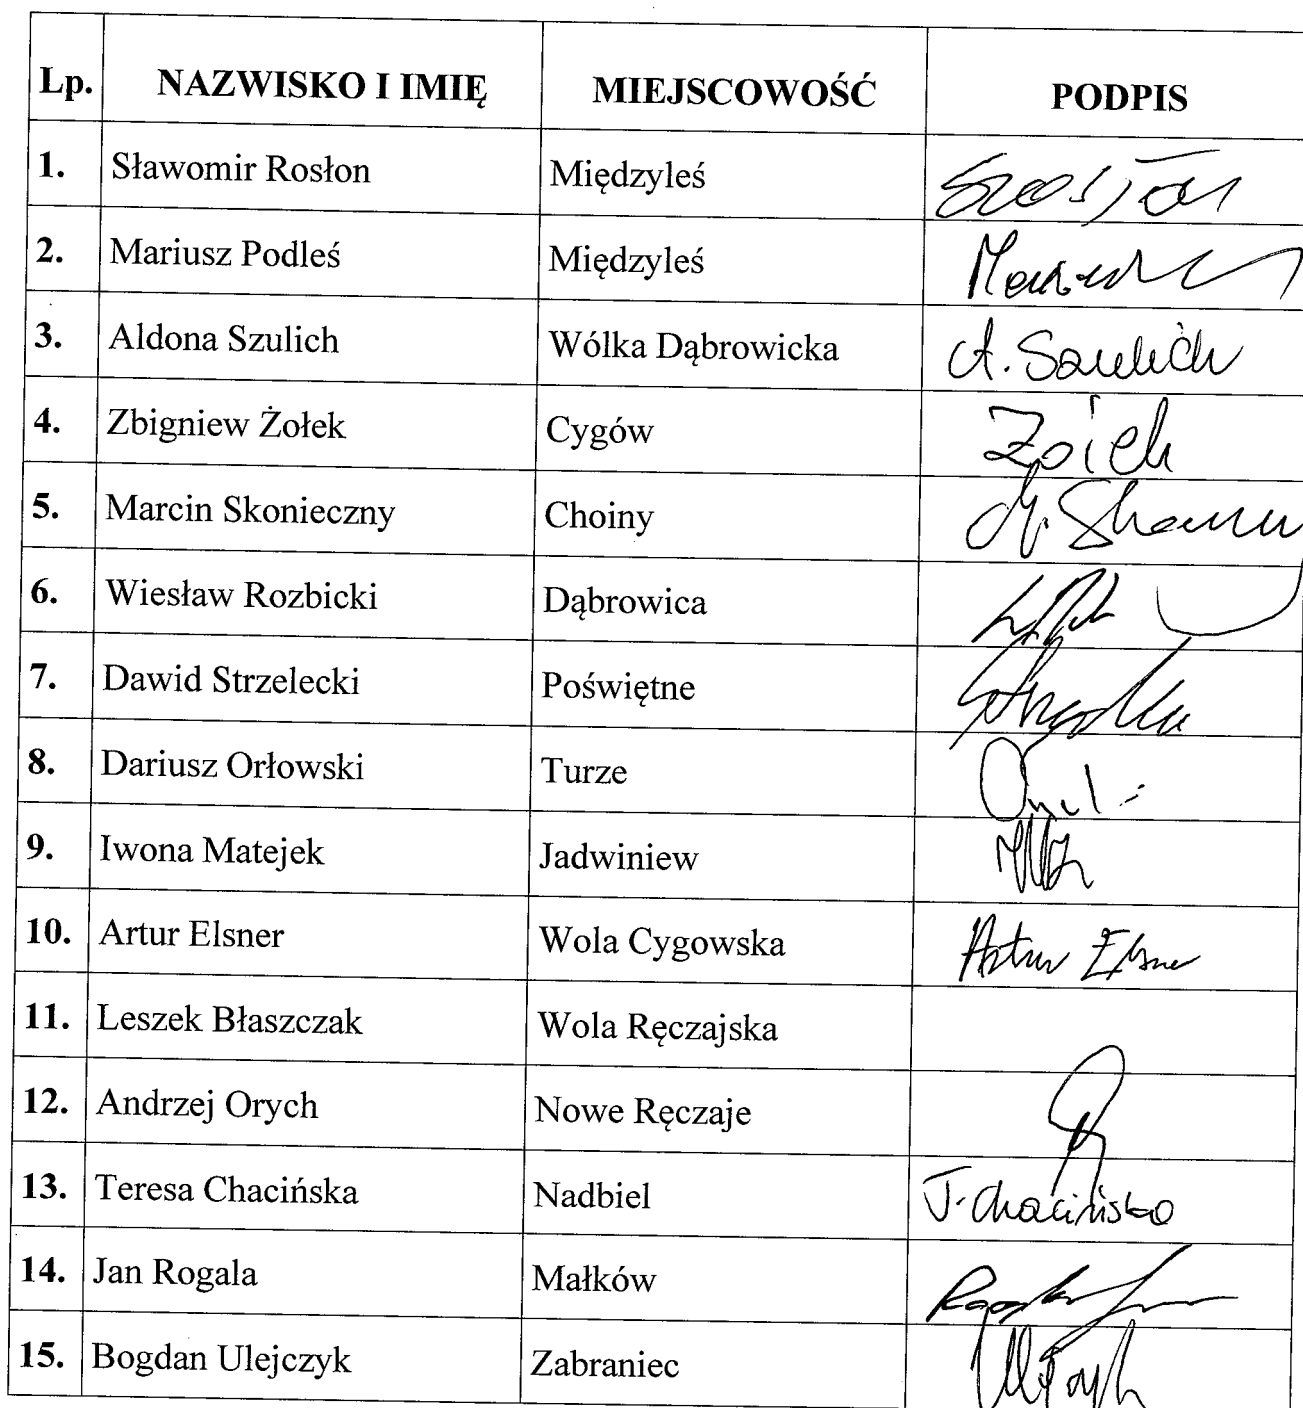 Lp. NAZWISKO I IMIĘ MIEJSCOWOŚĆ PODPIS
1. Sławomir Rosłon Międzyleś
2. Mariusz Podleś Międzyleś
3. Aldona Szulich Wólka Dąbrowicka A. Szulich
4. Zbigniew Żołek Cygów
5. Marcin Skonieczny Choiny
6. Wiesław Rozbicki Dąbrowica
7. Dawid Strzelecki Poświętne
8. Dariusz Orłowski Turze
9. Iwona Matejek Jadwiniew
10. Artur Elsner Wola Cygowska Artur Elsner
11. Leszek Błaszczak Wola Ręczajska
12. Andrzej Orych Nowe Ręczaje
13. Teresa Chacińska Nadbiel T. Chacińska
14. Jan Rogala Małków
15. Bogdan Ulejczyk Zabraniec